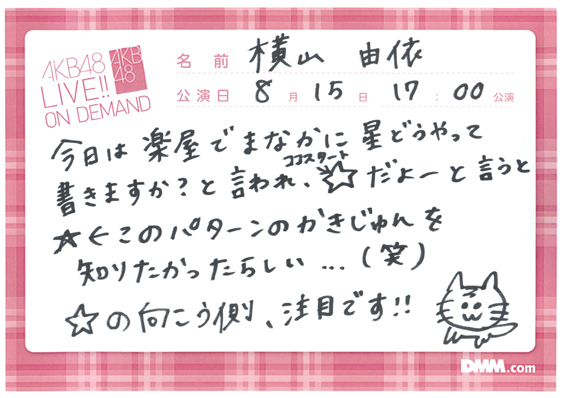 AKB48
LIVE!!
ON DEMAND
AKB
48
名前 横山 由依
公演日 8月15日 17:00公演
今日は楽屋でまなかに星どうやって
ココスタート
書きますか?と言われ、☆だよーと言うと
★←このパターンのかきじゅんを
知りたかったらしい…(笑)
☆の向こう側、注目です!!
DMM.com